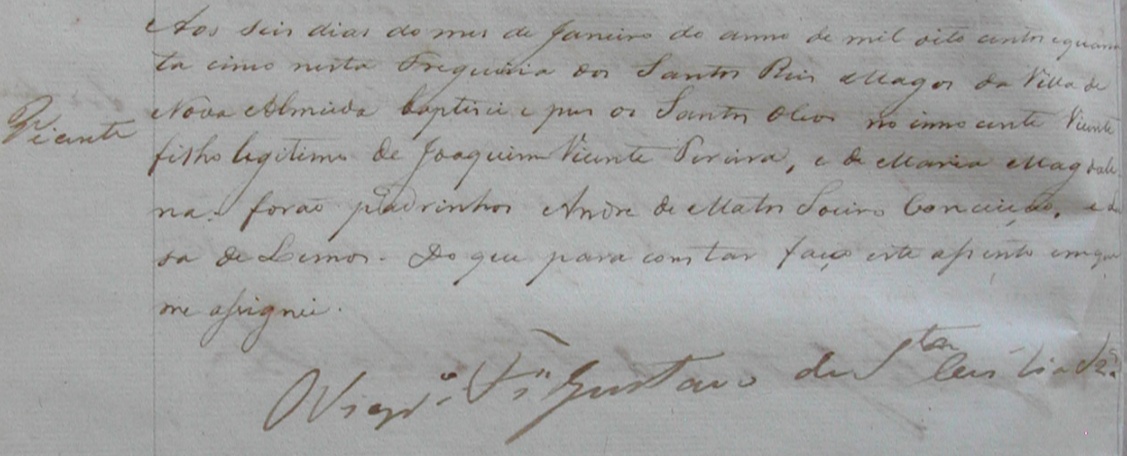 Aos seis dias do mes de Janeiro do anno de mil oito centos e quaren
ta cinco nesta Freguizia dos Santos Reis Magos da Villa de
Nova Almeida baptisei e pus os Santos Oleos no innocente Vicente
Vicente
filho legitimo de Joaquim Vicente Pereira, e de Maria Magdale
na. forão padrinhos Andre de Mattos Loeiro Conceição, e
sa de Lemos. Do que para constar faço este assento em que
me assignei.
O Vigr.º Fr. Gustavo de Sta